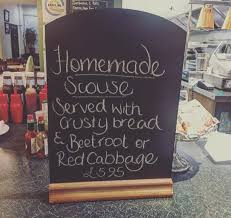 Homemade
Scouse
Served with
Crusty bread
& Beetroot or
Red Cabbage
£5.95